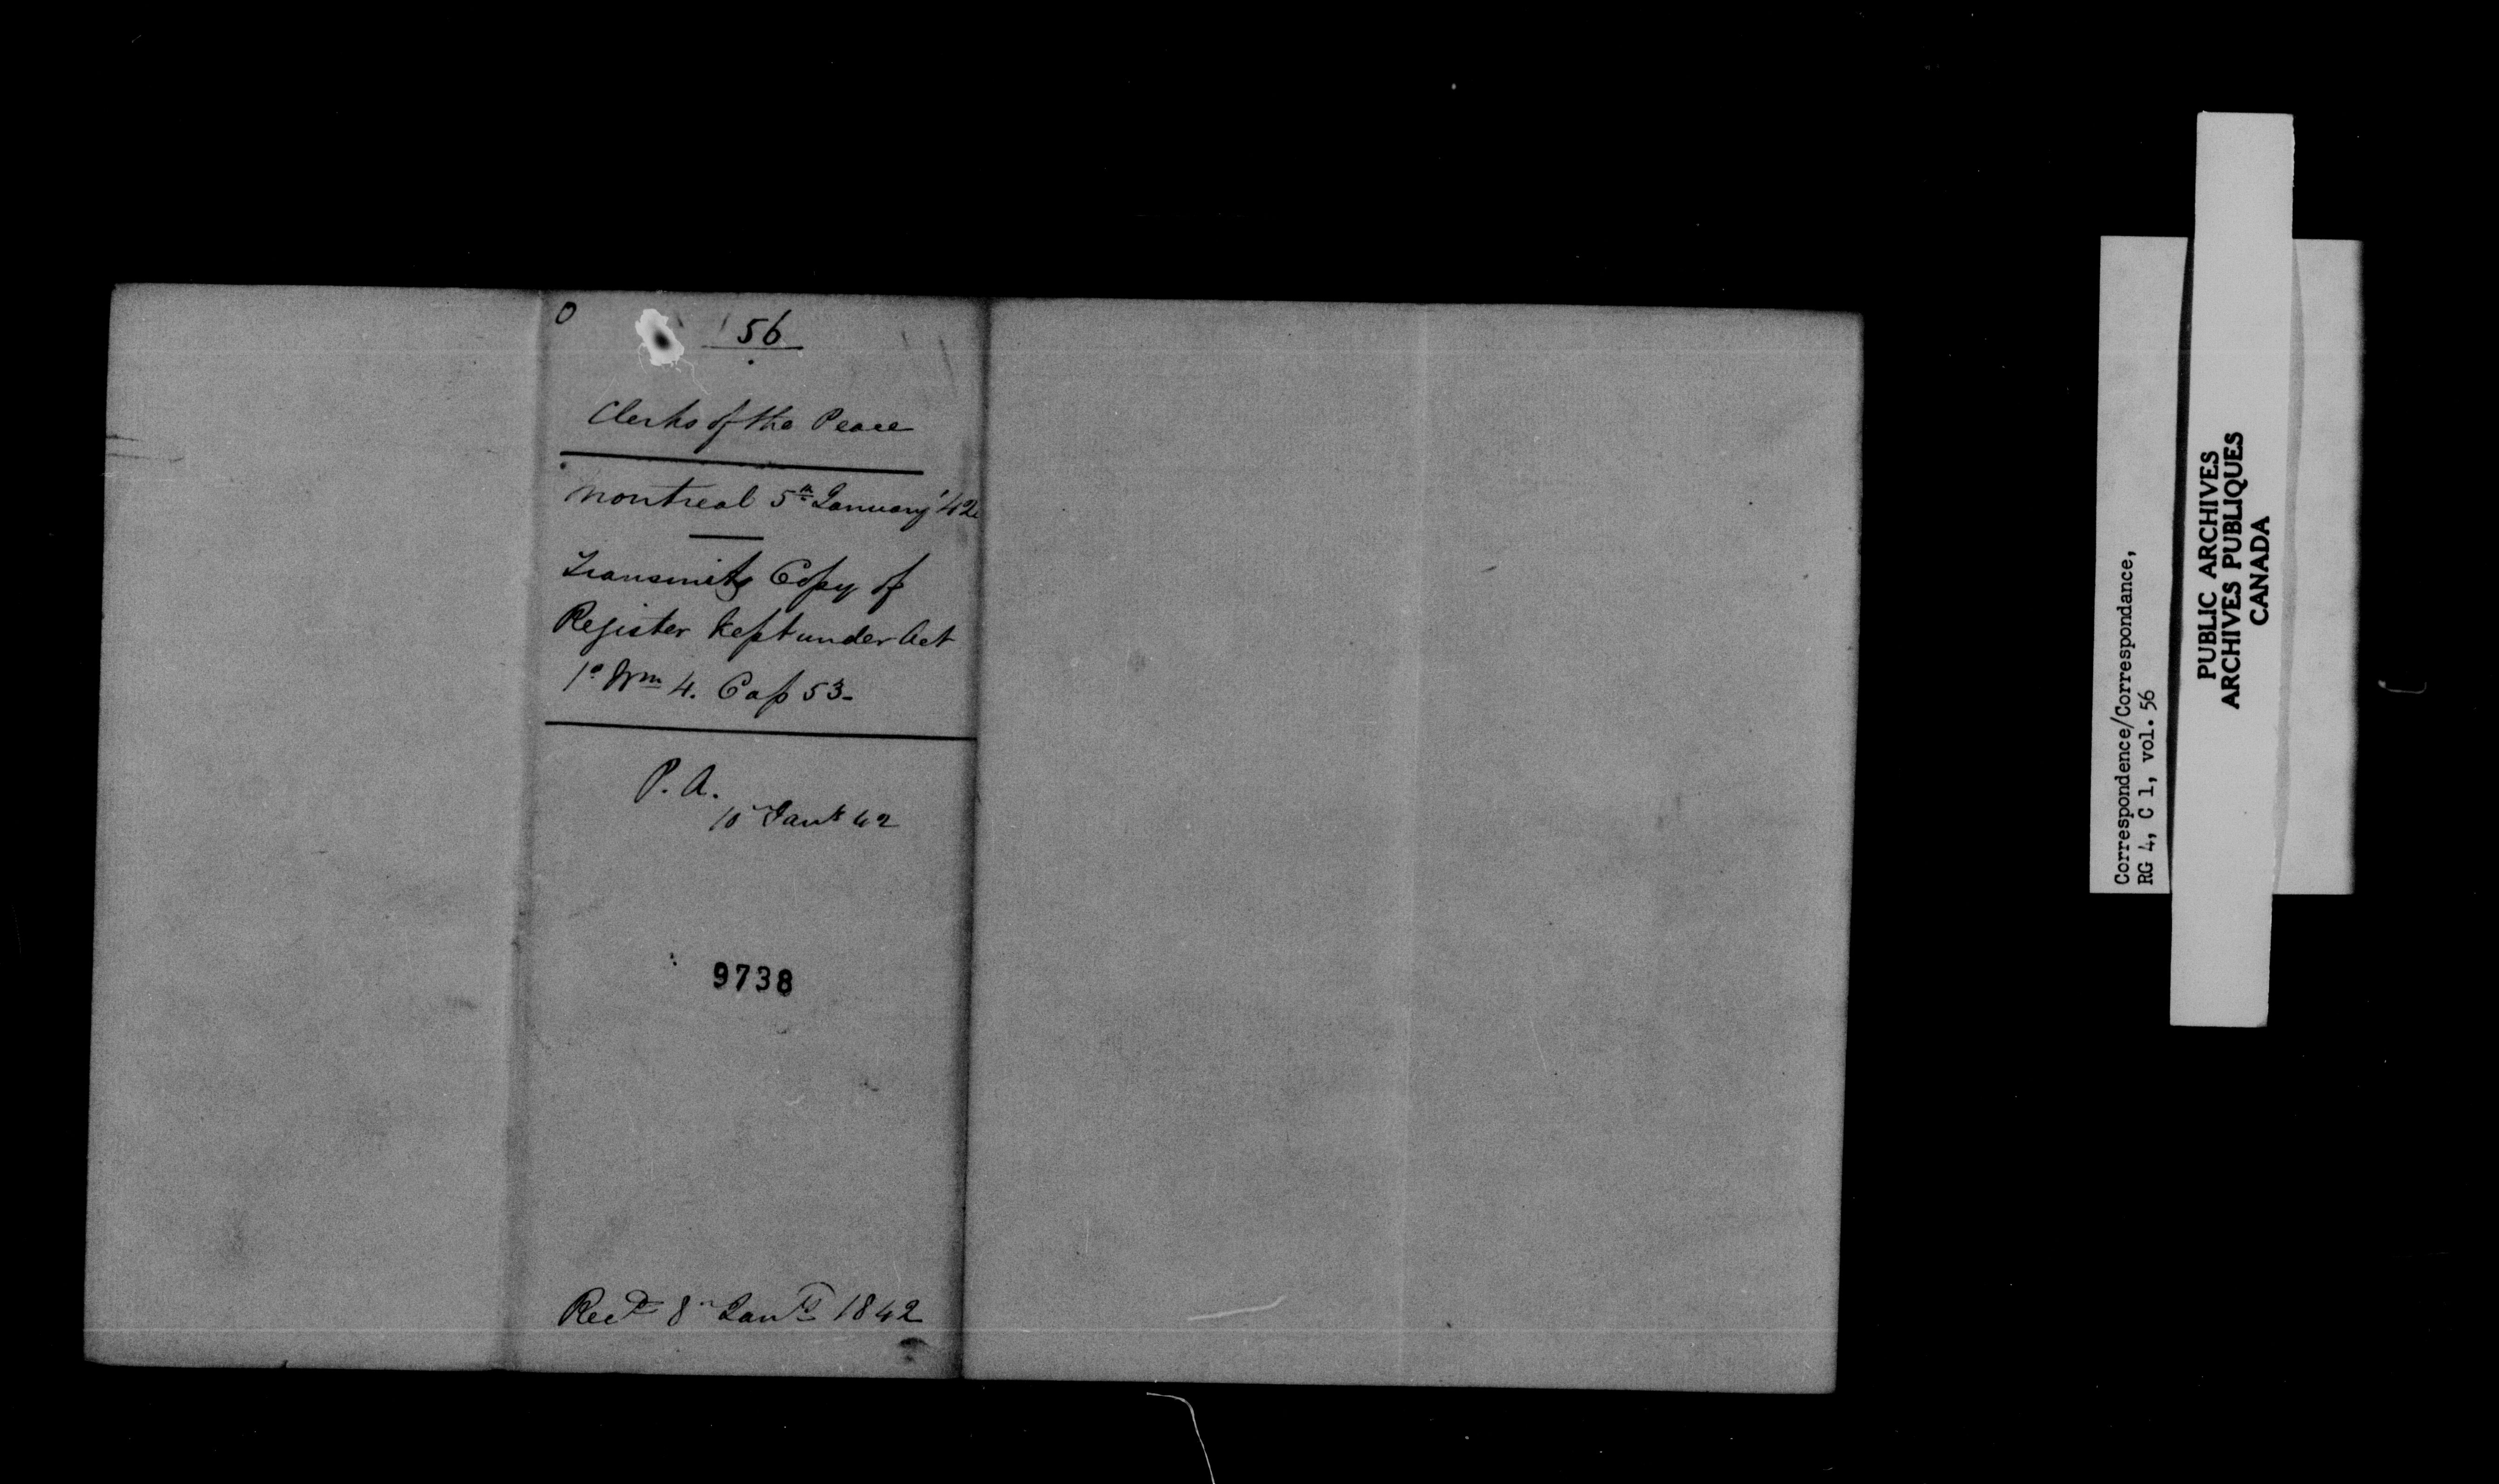 0
56
Clerks of the Peace
Montreal 5th January '42
Transmits Copy of
Register kept under Act
1o Wm 4. Cap 53-
P. A.
10 Jany 42
9738
Recd 8 Jany 1842
Correspondence/Correspondance,
RG 4, C 1, vol. 56
PUBLIC ARCHIVES
ARCHIVES PUBLIQUES
CANADA